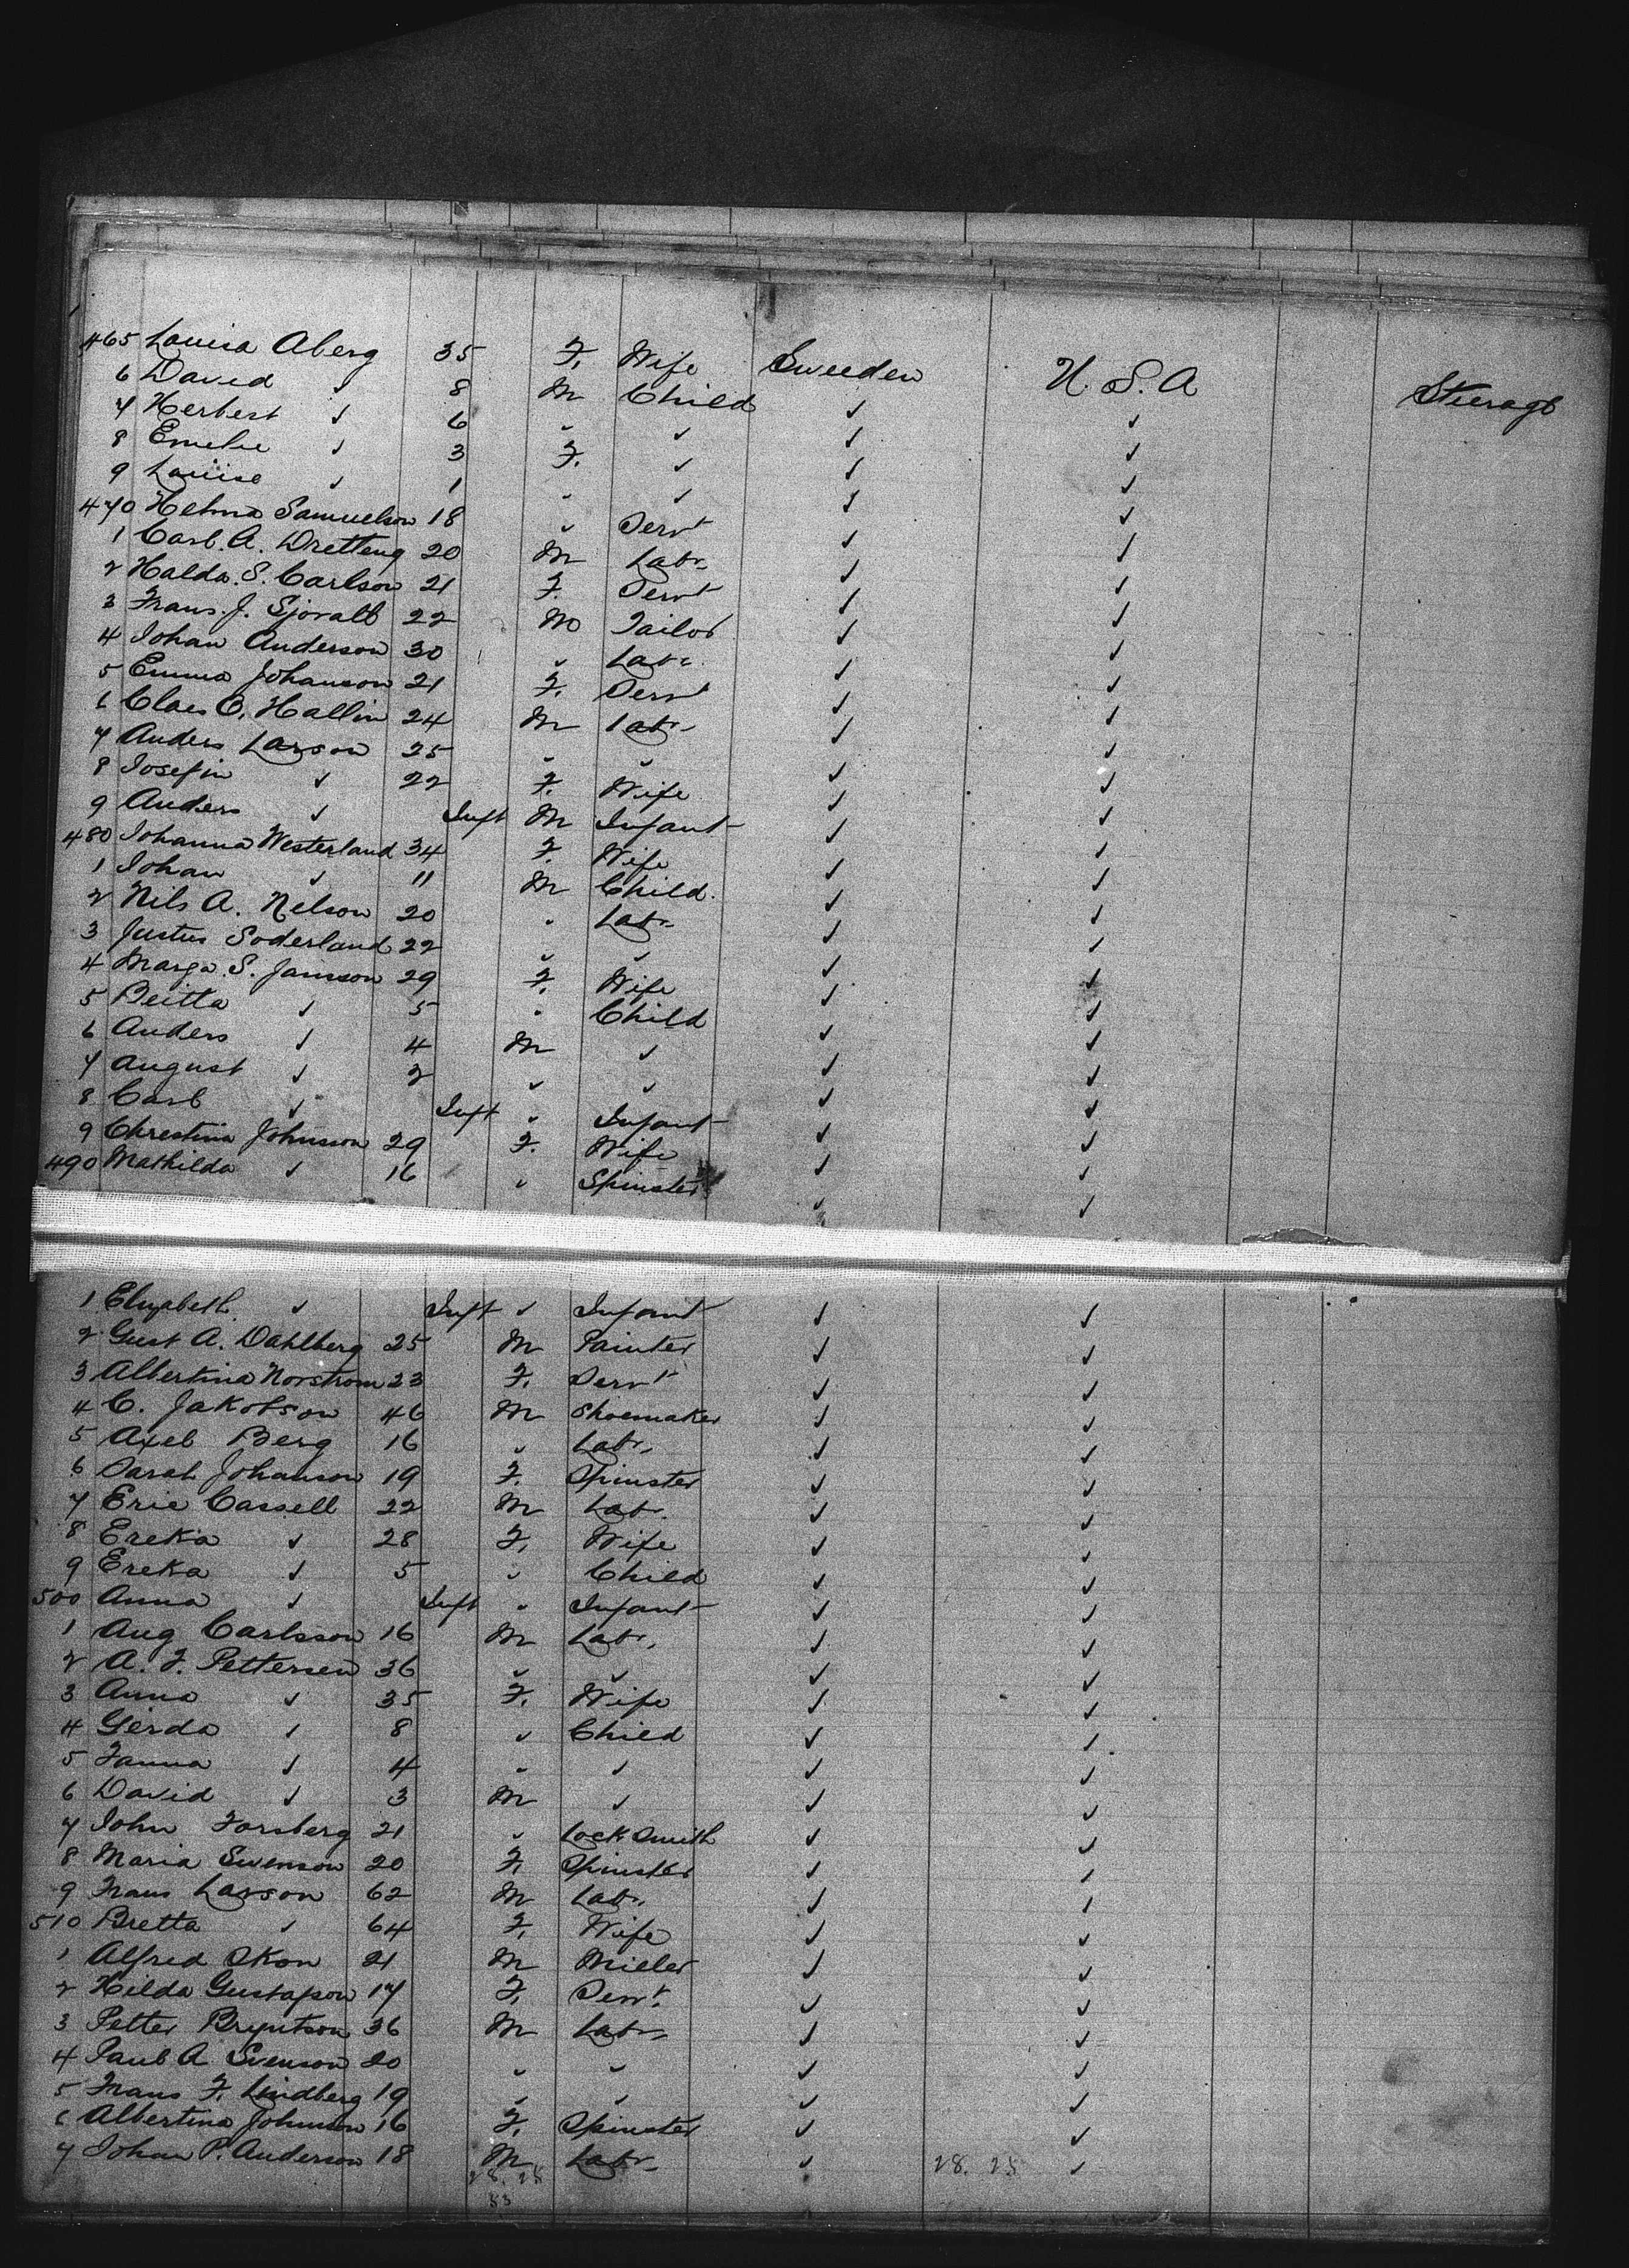 465 Louisa Aberg 35 F. Wife Sweeden U.S.A Steerage
6 David ✓ 8 M Child ✓ ✓
7 Herbert ✓ 6 " ✓ ✓ ✓
8 Emelie ✓ 3 F. ✓ ✓ ✓
9 Louise ✓ 1 " ✓ ✓ ✓
470 Helma Samuelson 18 " Servt ✓ ✓
1 Carl. A. Dretteng 20 M Labr. ✓ ✓
2 Halda. S. Carlson 21 F. Servt ✓ ✓
3 Frans. J. Sjovall 22 M Tailor ✓ ✓
4 Johan Anderson 30 " Labr. ✓ ✓
5 Emma Johanson 21 F. Servt ✓ ✓
6 Claes O. Hallin 24 M Labr. ✓ ✓
7 Anders Larson 25 " " ✓ ✓
8 Josefin ✓ 22 F. Wife ✓ ✓
9 Anders ✓ Inft M Infant ✓ ✓
480 Johanna Westerland 34 F. Wife ✓ ✓
1 Johan ✓ 11 M Child. ✓ ✓
2 Nils A. Nelson 20 " Labr. ✓ ✓
3 Justus Soderland 22 " " ✓ ✓
4 Marga. S. Jansson 29 F. Wife ✓ ✓
5 Beitta ✓ 5 " Child ✓ ✓
6 Anders ✓ 4 M ✓ ✓ ✓
7 August ✓ 2 " " ✓ ✓
8 Carl ✓ Inft " Infant ✓ ✓
9 Chrestina Johnsson 29 F. Wife ✓ ✓
490 Mathilda ✓ 16 " Spinster ✓ ✓
1 Elizabeth ✓ Inft ✓ Infant ✓ ✓
2 Gust A. Dahlberg 25 M Painter ✓ ✓
3 Albertina Norstrom 23 F. Servt ✓ ✓
4 C. Jakobson 46 M Shoemaker ✓ ✓
5 Axel Berg 16 " Labr. ✓ ✓
6 Sarah Johanson 19 F. Spinster ✓ ✓
7 Eric Cassell 22 M Labr. ✓ ✓
8 Ereka ✓ 28 F. Wife ✓ ✓
9 Ereka ✓ 5 " Child ✓ ✓
500 Anna ✓ Inft " Infant ✓ ✓
1 Aug Carlsson 16 M Labr. ✓ ✓
2 A. F. Pettersen 36 " " ✓ ✓
3 Anna ✓ 35 F. Wife ✓ ✓
4 Gerda ✓ 8 " Child ✓ ✓
5 Fanna ✓ 4 " ✓ ✓ ✓
6 David ✓ 3 M ✓ ✓ ✓
7 John Forsberg 21 " Lock Smith ✓ ✓
8 Maria Swenson 20 F. Spinster ✓ ✓
9 Frans Larson 62 M Labr. ✓ ✓
510 Bretta ✓ 64 F. Wife ✓ ✓
1 Alfred Okon 21 M Miller ✓ ✓
2 Hilda Gustafson 17 F. Servt. ✓ ✓
3 Petter Bryntson 36 M Labr. ✓ ✓
4 Paul A Svenson 20 " " ✓ ✓
5 Frans F. Lindberg 19 " " ✓ ✓
6 Albertina Johnson 16 F. Spinster ✓ ✓
7 Johan P. Anderson 18 M Labr. ✓ 28. 25 ✓
28. 25
53